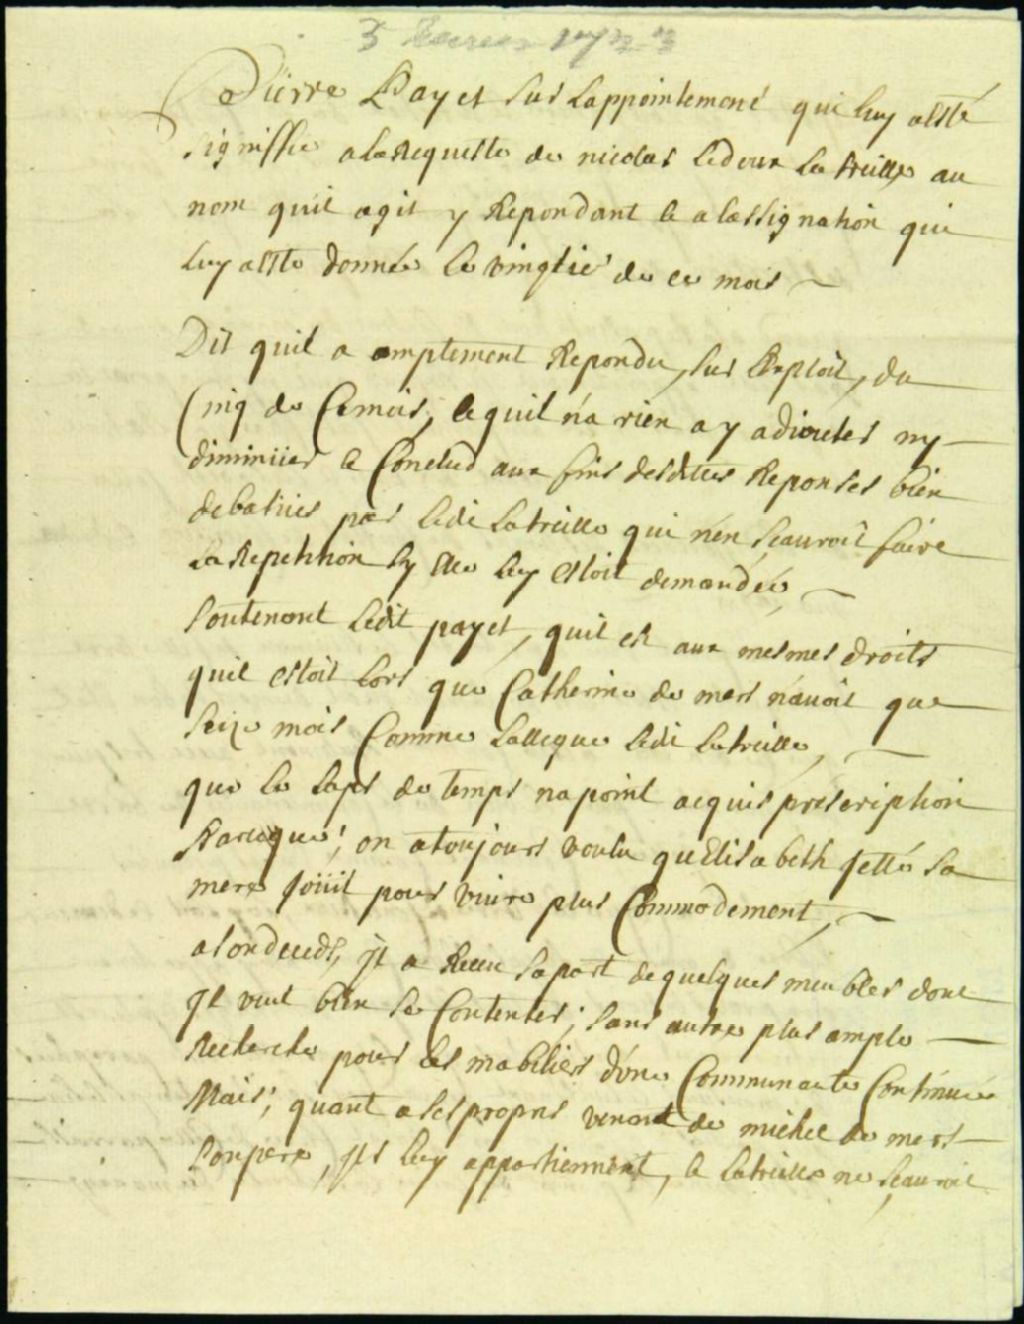 3 fevrier 1723
Pierre Payet sur lappointement qui luy a esté
signiffie a la Requeste de nicolas Ledoux la treille au
nom quil agit y Repondant & a lassignation qui
luy a este donnée le vingtie' de ce mois
Dit quil a amplement Repondu, sur Exploit, du
Cinq de Cemois, & quil n'a rien a y adiouter ny
diminüer & Conclud aux fins desdittes Reponses bien
debatües par ledit Latreille qui n'en sçauroit faire
La Repetition sy elle luy estoit demandée,
Soutenant ledit payet, quil est aux mesmes droits
quil estoit Lors que Catherine de mers n'avoit que
seize mois Comme Lallegue ledit Latreille,
que le laps de temps na point acquis prescription
Parceque; on a toujours voulu quElisabeth Jetté sa
mere Joüit pour vivre plus Commodement,
a son deceds, Jl a Receu sa part de quelques meubles dont
Jl veut bien se Contenter; sans autre plus ample
Recherche pour les mobiliers d'une Communaute Continuée
Mais, quant a ses propres venant de michel de mers
son pere, Jls luy appartiennent, & Latreille ne sçauroit